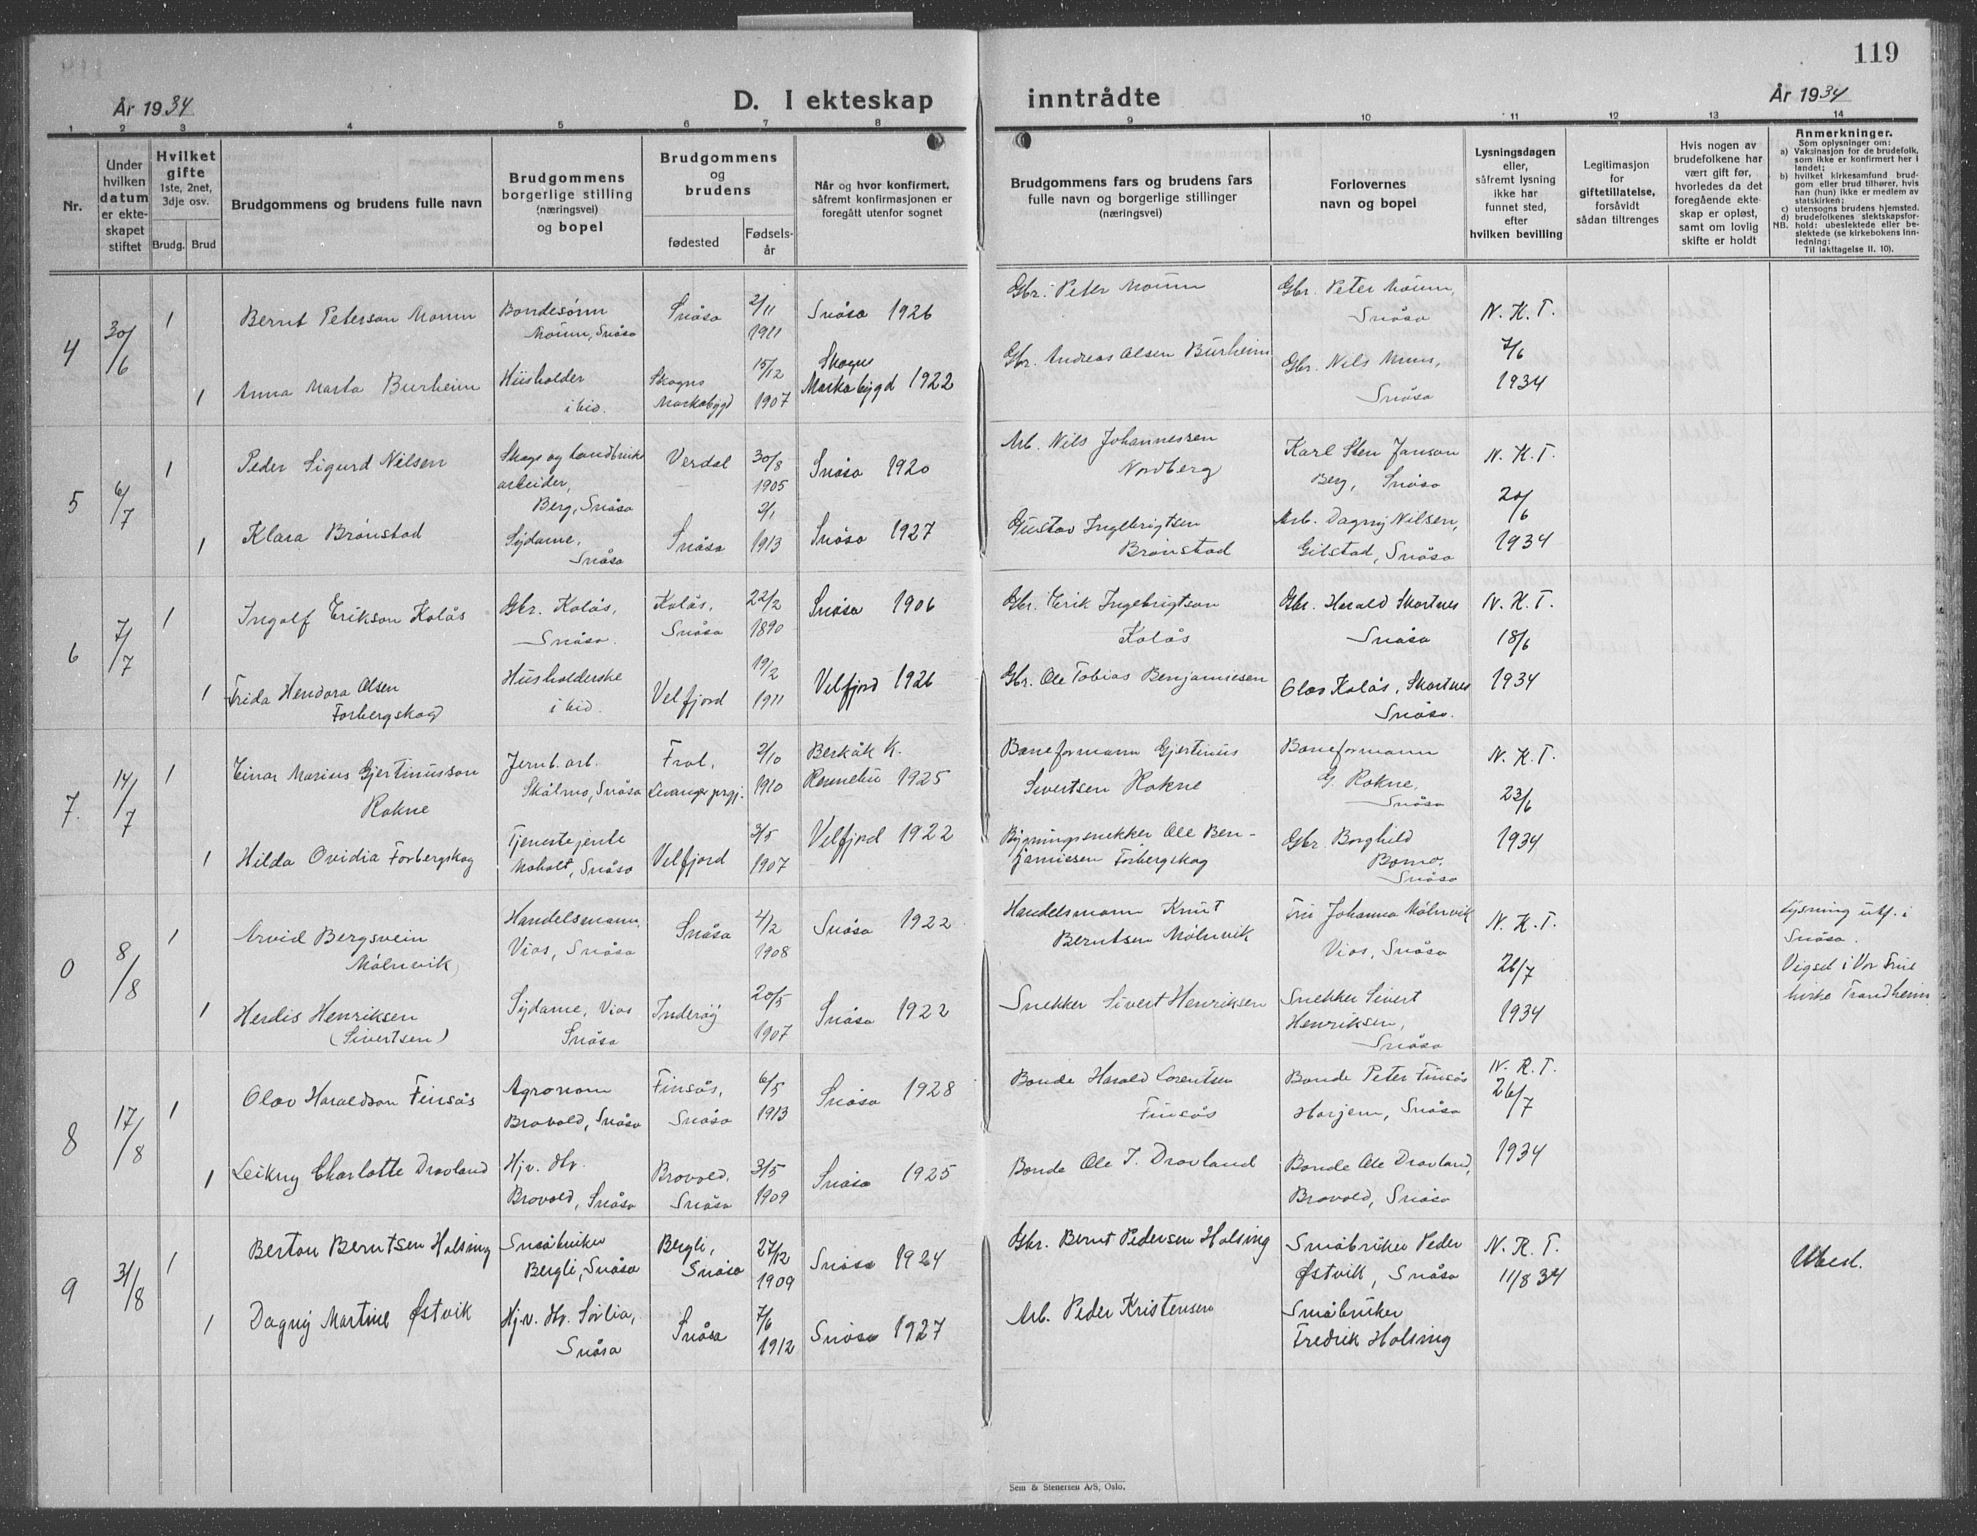 119
År 1934
D. I ekteskap inntrådte
År 1934
1 2 3 4 5 6 7 8 9 10 11 12 13 14
Nr.
Under
hvilken
datum
er ekte-
skapet
stiftet
Hvilket
gifte
1ste, 2net,
3dje osv.
Brudg. Brud
Brudgommens og brudens fulle navn
Brudgommens
borgerlige stilling
(næringsvei)
og bopel
Brudgommens
og
brudens
fødested
Fødsels-
år
Når og hvor konfirmert,
såfremt konfirmasjonen er
foregått utenfor sognet
Brudgommens fars og brudens fars
fulle navn og borgerlige stillinger
(næringsvei)
Forlovernes
navn og bopel
Lysningsdagen
eller,
såfremt lysning
ikke har
funnet sted,
efter
hvilken bevilling
Legitimasjon
for
giftetillatelse,
forsåvidt
sådan tiltrenges
Hvis nogen av
brudefolkene har
vært gift før,
hvorledes da det
foregående ekte-
skap er opløst,
samt om lovlig
skifte er holdt
Anmerkninger.
Som oplysninger om:
a) Vaksinasjon for de brudefolk,
som ikke er konfirmert her i
landet;
b) hvilket kirkesamfund brud-
gom eller brud tilhører, hvis
han (hun) ikke er medlem av
statskirken;
c) utensogns brudens hjemsted.
d) brudefolkenes slektskapsfor-
NB. hold: ubeslektede eller be-
slektede (se kirkebokens inn-
ledning:
Til iakttagelse II. 10).
4
30/6
1
Bernt Peterson Moum
Bondesønn
Moum, Snåsa
Snåsa
2/11
1911
Snåsa 1926
Gbr. Peter Moum
Gbr. Peter Moum,
Snåsa
N. K. T.
7/6
1934
1
Anna Marta Burheim
Husholder
ibid.
Skogns
Markabygd
15/12
1907
Skogns
Markabygd 1922
Gbr. Andreas Olsen Burheim
Gbr. Nils Mum,
Snåsa
5
6/7
1
Peder Sigurd Nilsen
Skogs og landbruks
arbeider,
Berg, Snåsa
Verdal
30/8
1905
Snåsa 1920
Arb. Nils Johannessen
Nordberg
Karl Sten Janson
Berg, Snåsa
N. K. T.
20/6
1934
1
Klara Brønstad
Sydame,
Snåsa
Snåsa
2/1
1913
Snåsa 1927
Gustav Ingebrigtsen
Brønstad
Arb. Dagny Nilsen,
Gilstad, Snåsa
6
7/7
1
Ingolf Erikson Kolås
Gbr. Kolås,
Snåsa.
Kolås,
Snåsa
22/2
1890
Snåsa 1906
Gbr. Erik Ingebrigtson
Kolås
Gbr. Harald Skartnes
Snåsa
N. K. T.
18/6
1934
1
Frida Hendora Olsen
Forbergskog
Husholderske
ibid.
Velfjord
19/2
1911
Velfjord 1926
Gbr. Ole Tobias Benjaminsen
Olav Kolås, Skartnes
Snåsa.
7.
14/7
1
Einar Marius Gjertinusson
Rokne
Jernb. arb.
Skålmo, Snåsa
Frol,
Levanger prgj.
2/10
1910
Berkåk K.
Rennebu 1925
Baneformann Gjertinus
Sivertsen Rokne
Baneformann
G. Rokne,
Snåsa
N. K. T.
23/6
1934
1
Hilda Ovidia Forbergskog
Tjenestejente
Moholt, Snåsa
Velfjord
3/5
1907
Velfjord 1922
Bygningssnekker Ole Ben-
jaminsen Forbergskog
Gbr Borghild
Bomo,
Snåsa
0
8/8
1
Arvid Bergsvein
Mølnvik
Handelsmann,
Vios, Snåsa
Snåsa
4/2
1908
Snåsa 1922
Handelsmann Knut
Berntsen Mølnvik
Fru Johanna Mølnvik
Vios, Snåsa
N. K. T.
26/7
1934
Lysning utf. i
Snåsa.
Vigsel i Vor Frue
kirke Trondheim
1
Herdis Henriksen
(Sivertsen)
Sydame, Vios
Snåsa
Inderøy
20/5
1907
Snåsa 1922
Snekker Sivert Henriksen
Snekker Sivert
Henriksen,
Snåsa
8
17/8
1
Olav Haraldson Finsås
Agronom
Brovold, Snåsa
Finsås,
Snåsa
6/5
1913
Snåsa 1928
Bonde Harald Lorentsen
Finsås
Bonde Peter Finsås
Horjem, Snåsa
N. K. T.
26/7
1934
1
Leikny Charlotte Dravland
Hjv. dtr.
Brovold, Snåsa
Brovold,
Snåsa
3/5
1909
Snåsa 1925
Bonde Ole T. Dravland
Bonde Ole Dravland,
Brovold, Snåsa
9
31/8
1
Berton Berntsen Holsing
Småbruker
Bergli, Snåsa
Bergli,
Snåsa
27/12
1909
Snåsa 1924
Gbr. Bernt Pedersen Holsing
Småbruker Peder
Østvik, Snåsa
N. K. T.
11/8 34
Ubesl.
1
Dagny Martine Østvik
Hjv. dtr. Sørlia,
Snåsa
Snåsa
7/6
1912
Snåsa 1927
Arb. Peder Kristensen
Småbruker
Fredrik Holsing
Sem & Stenersen A/S, Oslo.